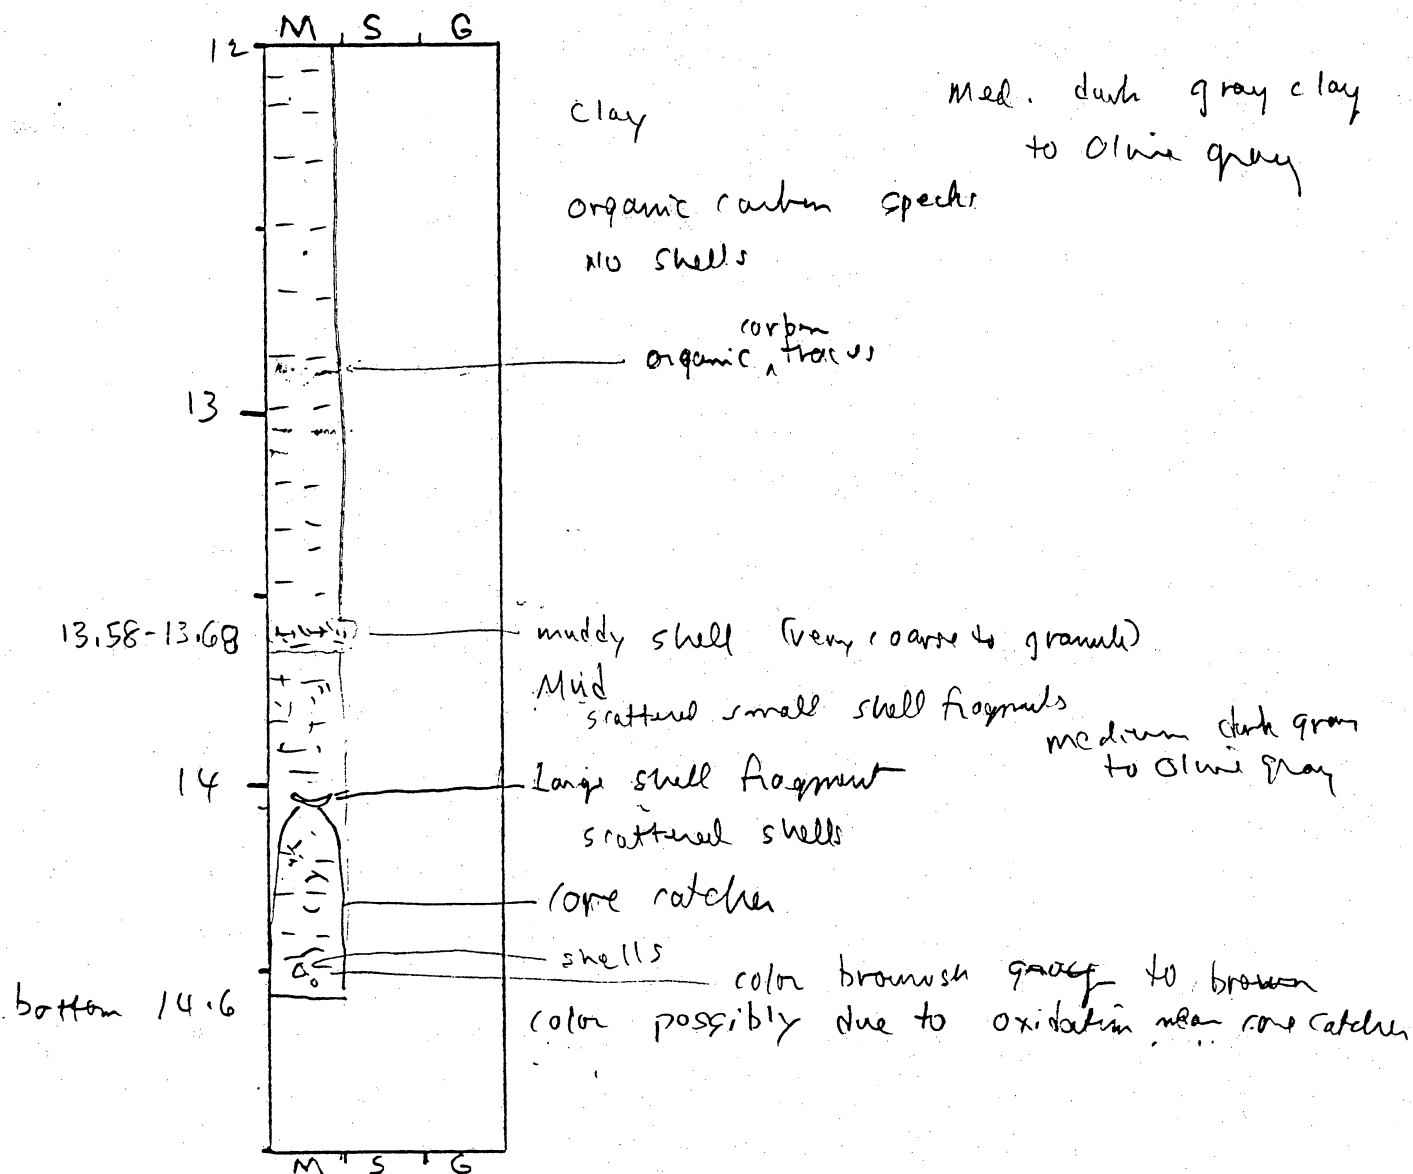 M S G
12
Clay
med. dark gray clay
to Olive gray
organic carbon specks
No shells
carbon
organic ^ traces
13
13.58-13.68
muddy shell (very coarse to granule)
Mud
scattered small shell fragments
medium dark gray
to Olive gray
14
Large shell fragment
scattered shells
core catcher
shells
color brownish gray to brown
bottom 14.6
color possibly due to oxidation near core catcher
M S G